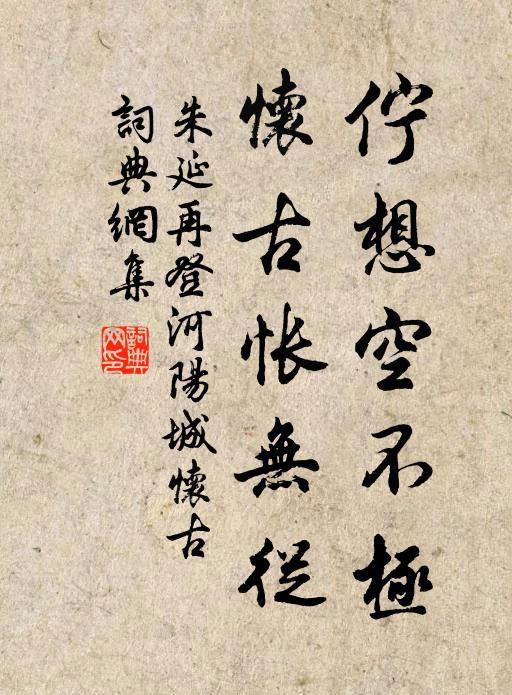 佇想空不極
懷古悵無從
朱延再登河陽城懷古
詞典網集
詞典網印